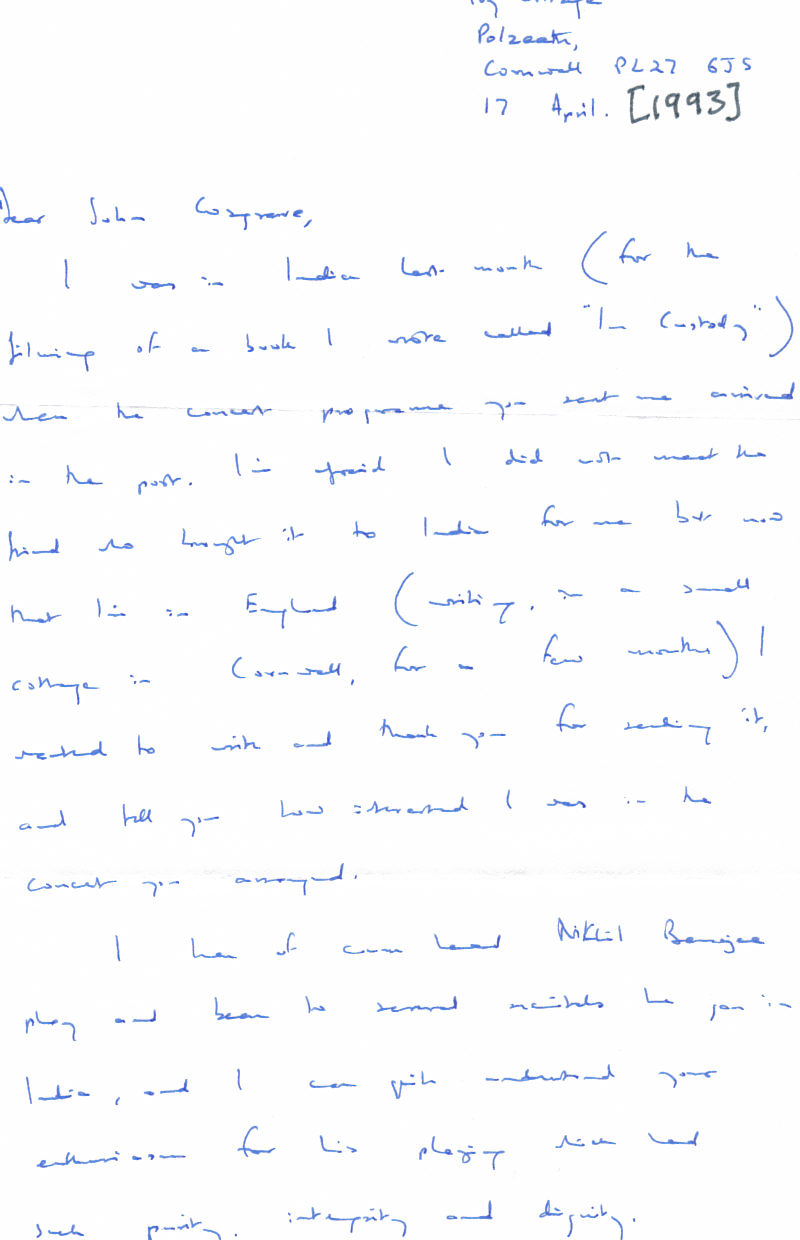 Cottage
Polzeath,
Cornwall PL27 6JS
17 April. [1993]
Dear John Cosgrave,
I was in India last month (for the
filming of a book I wrote called "In Custody")
when the concert programme you sent me arrived
in the post. I'm afraid I did not meet the
friend who brought it to India for me but now
that I'm in England (writing, in a small
cottage in Cornwall, for a few months) I
wanted to write and thank you for sending it,
and tell you how interested I was in the
concert you arranged.
I have of course heard Nikhil Banerjee
play and been to several recitals he gave in
India, and I can quite understand your
enthusiasm for his playing which had
such purity, integrity and dignity.